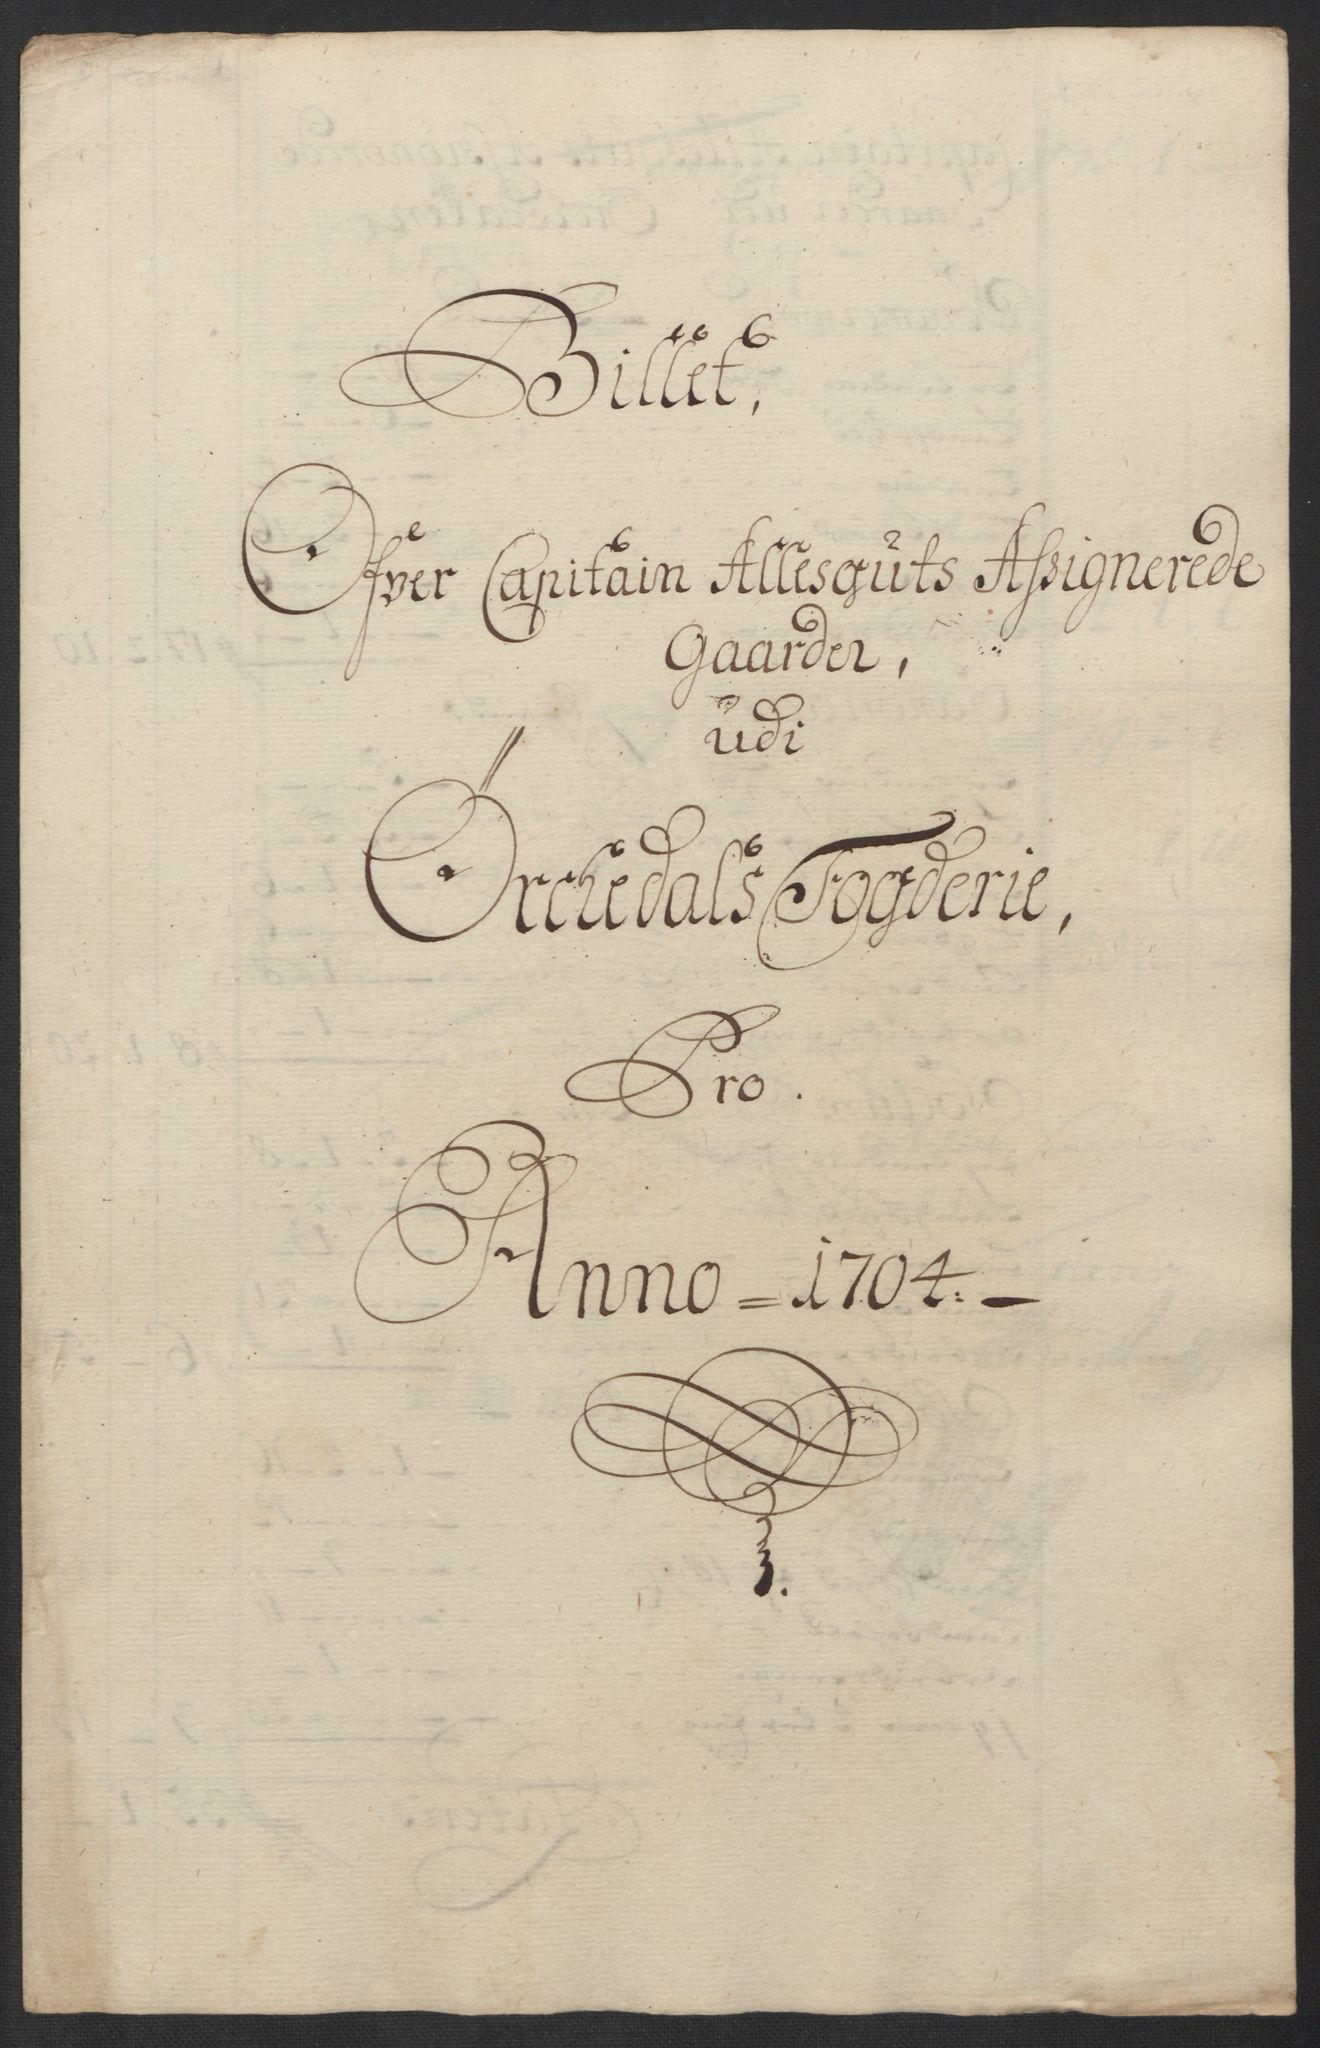 Billet,
Ofver Capitain Allesguts Assignerede
Gaarder,
udi
Örchedals Fogderie,
Pro.
Anno = 1704. –